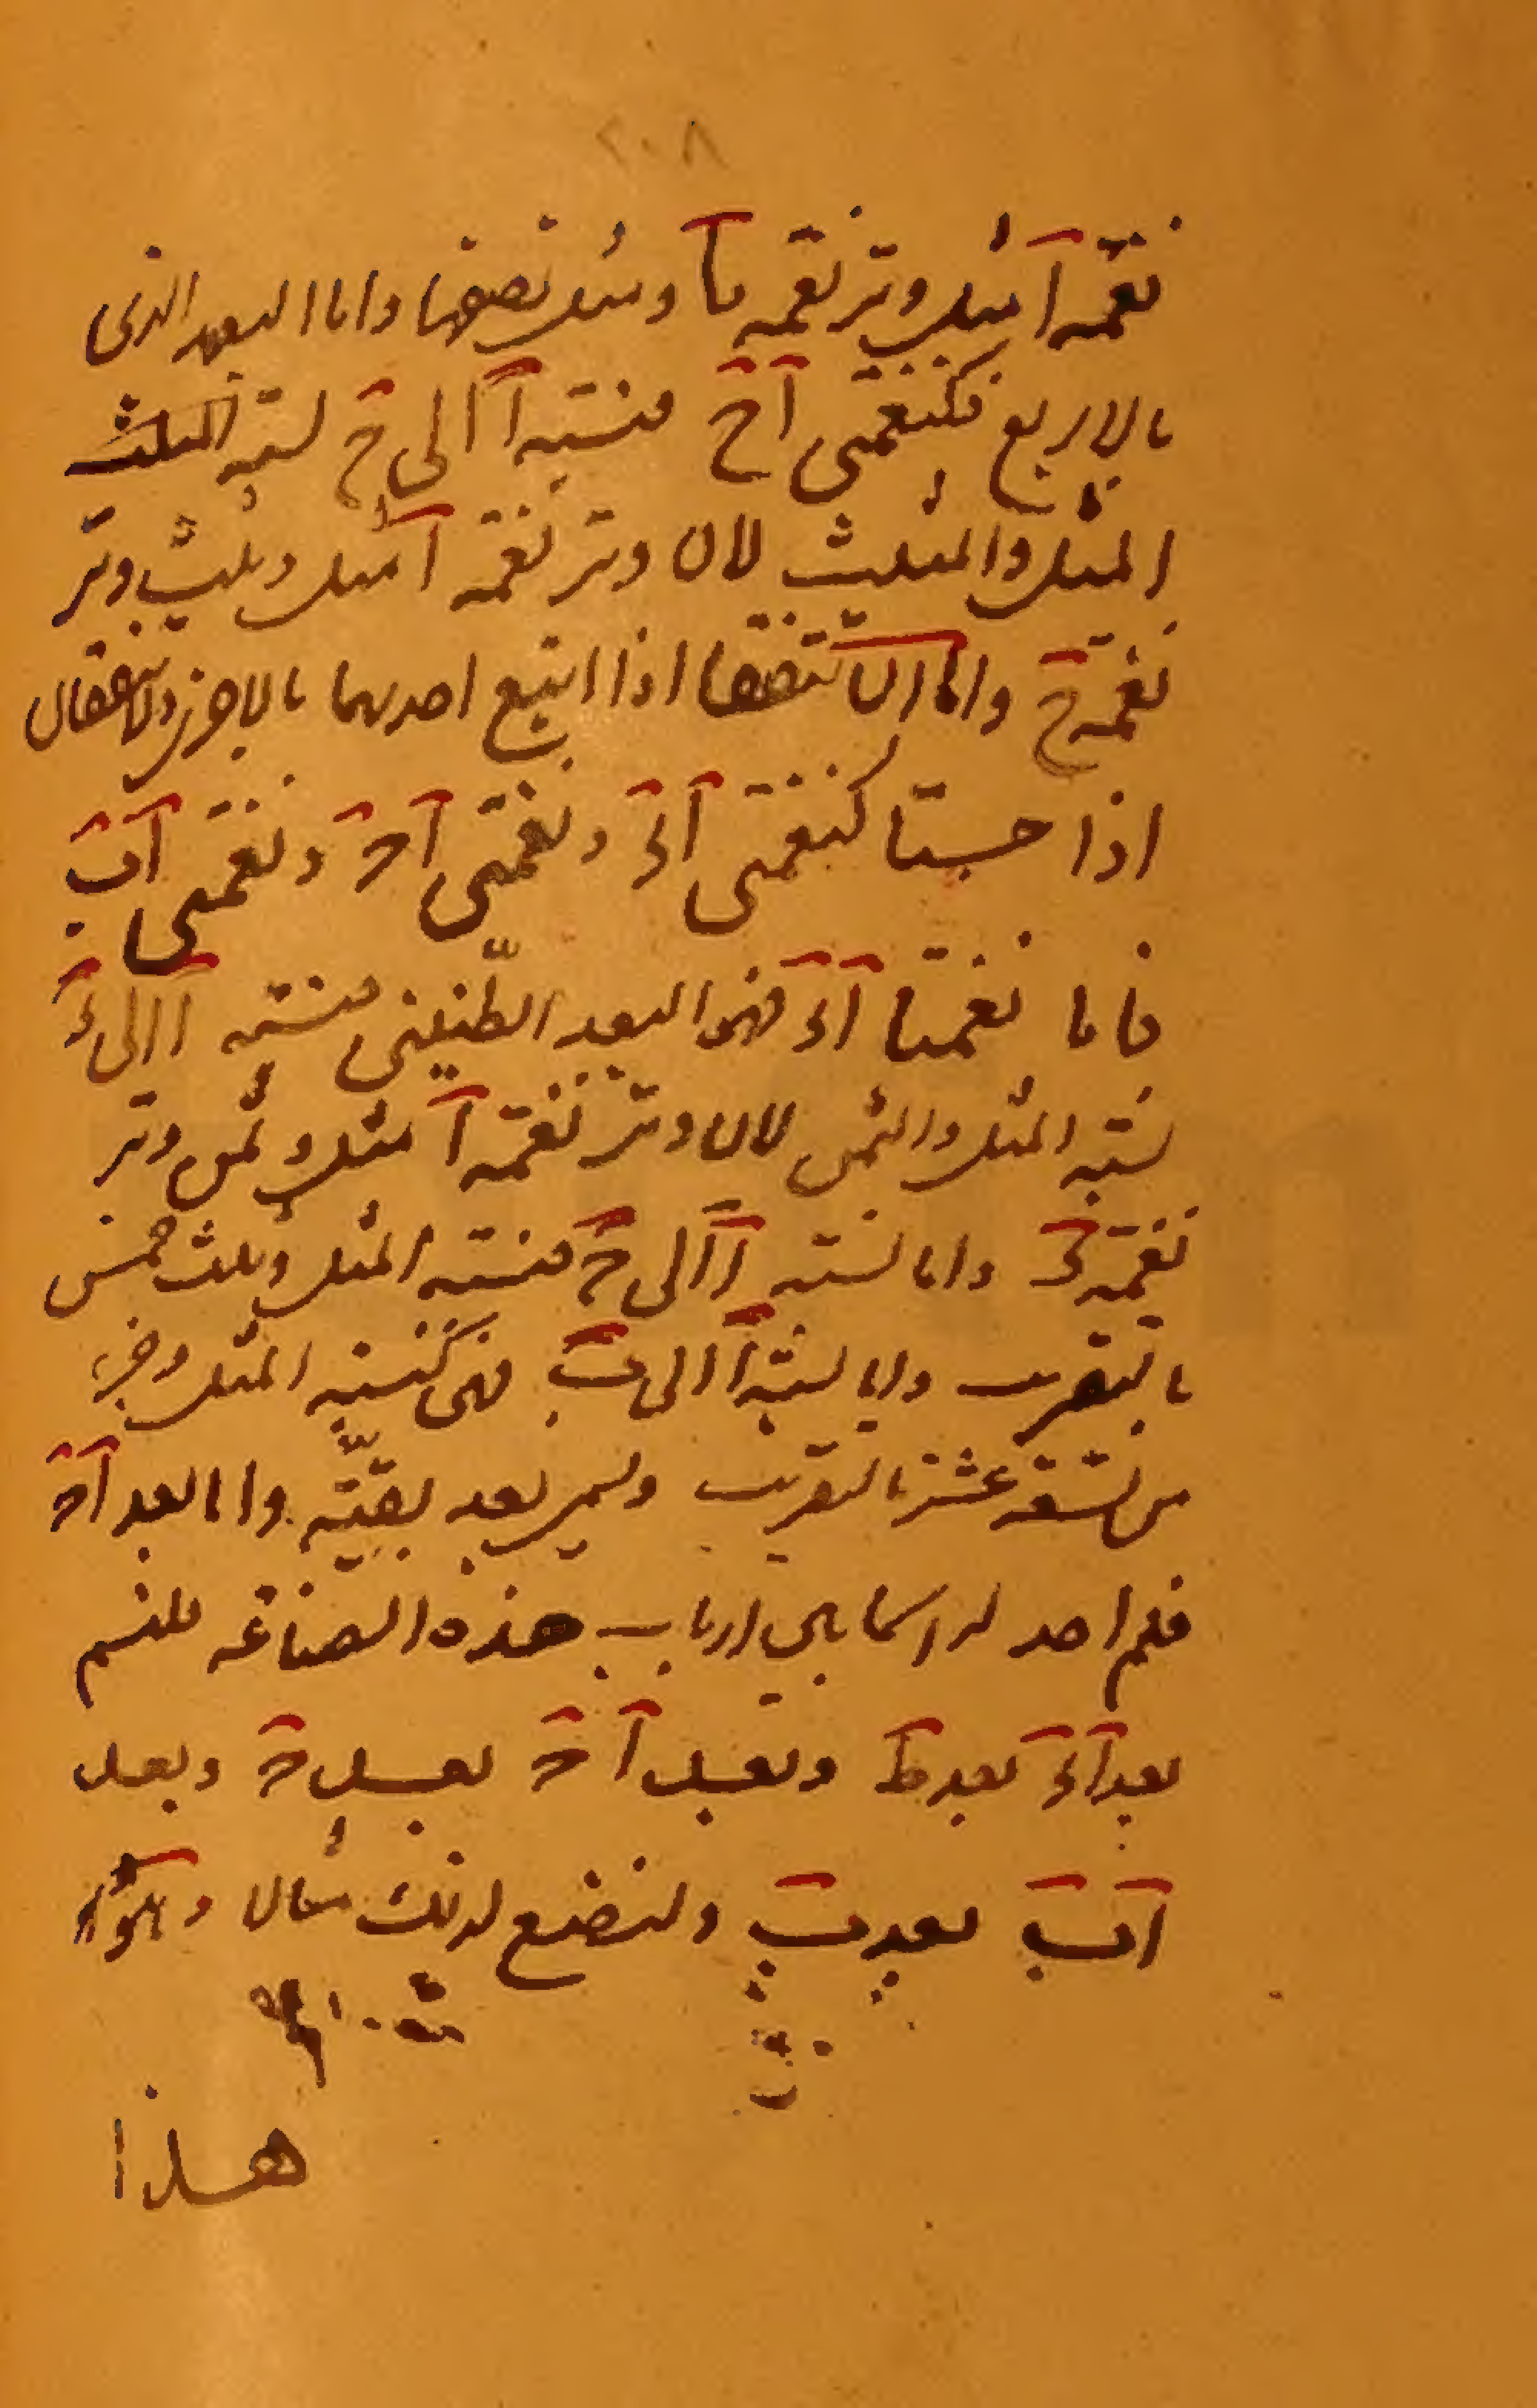 ٢٠٨
نغمة آ مثل وتر نغمة يا ومثل نصفها واما البعد الذى
بالاربع فكنغمتى آ ح فنسبة آ الى ح نسبة
المثل والثلث لان وتر نغمة آ مثل وثلث وتر
نغمة ح واما اذا اتبع احدهما بالاخرى
اذا كنغمتى آ د ونغمتى آ ج ونغمتى آ ب
فاما نغمتا آ د فهو البعد الطنينى فنسبة آ الى د
نسبة المثل والثمن لان وتر نغمة آ مثل وثمن وتر
نغمة د واما نسبة آ الى ج فنسبة المثل وثلث خمس
بالتقريب واما نسبة آ الى ب فهى كنسبة المثل وجزء
من تسعة عشر بالتقريب وليسم بعد بقية واما بعد آ ج
فلم اجد له اسما بين ارباب هذه الصناعة فلنسم
بعد آ د بعد ط وبعد آ ج بعد ج وبعد
آ ب بعد ب ولنضع لذلك مثالا وهو
هذا